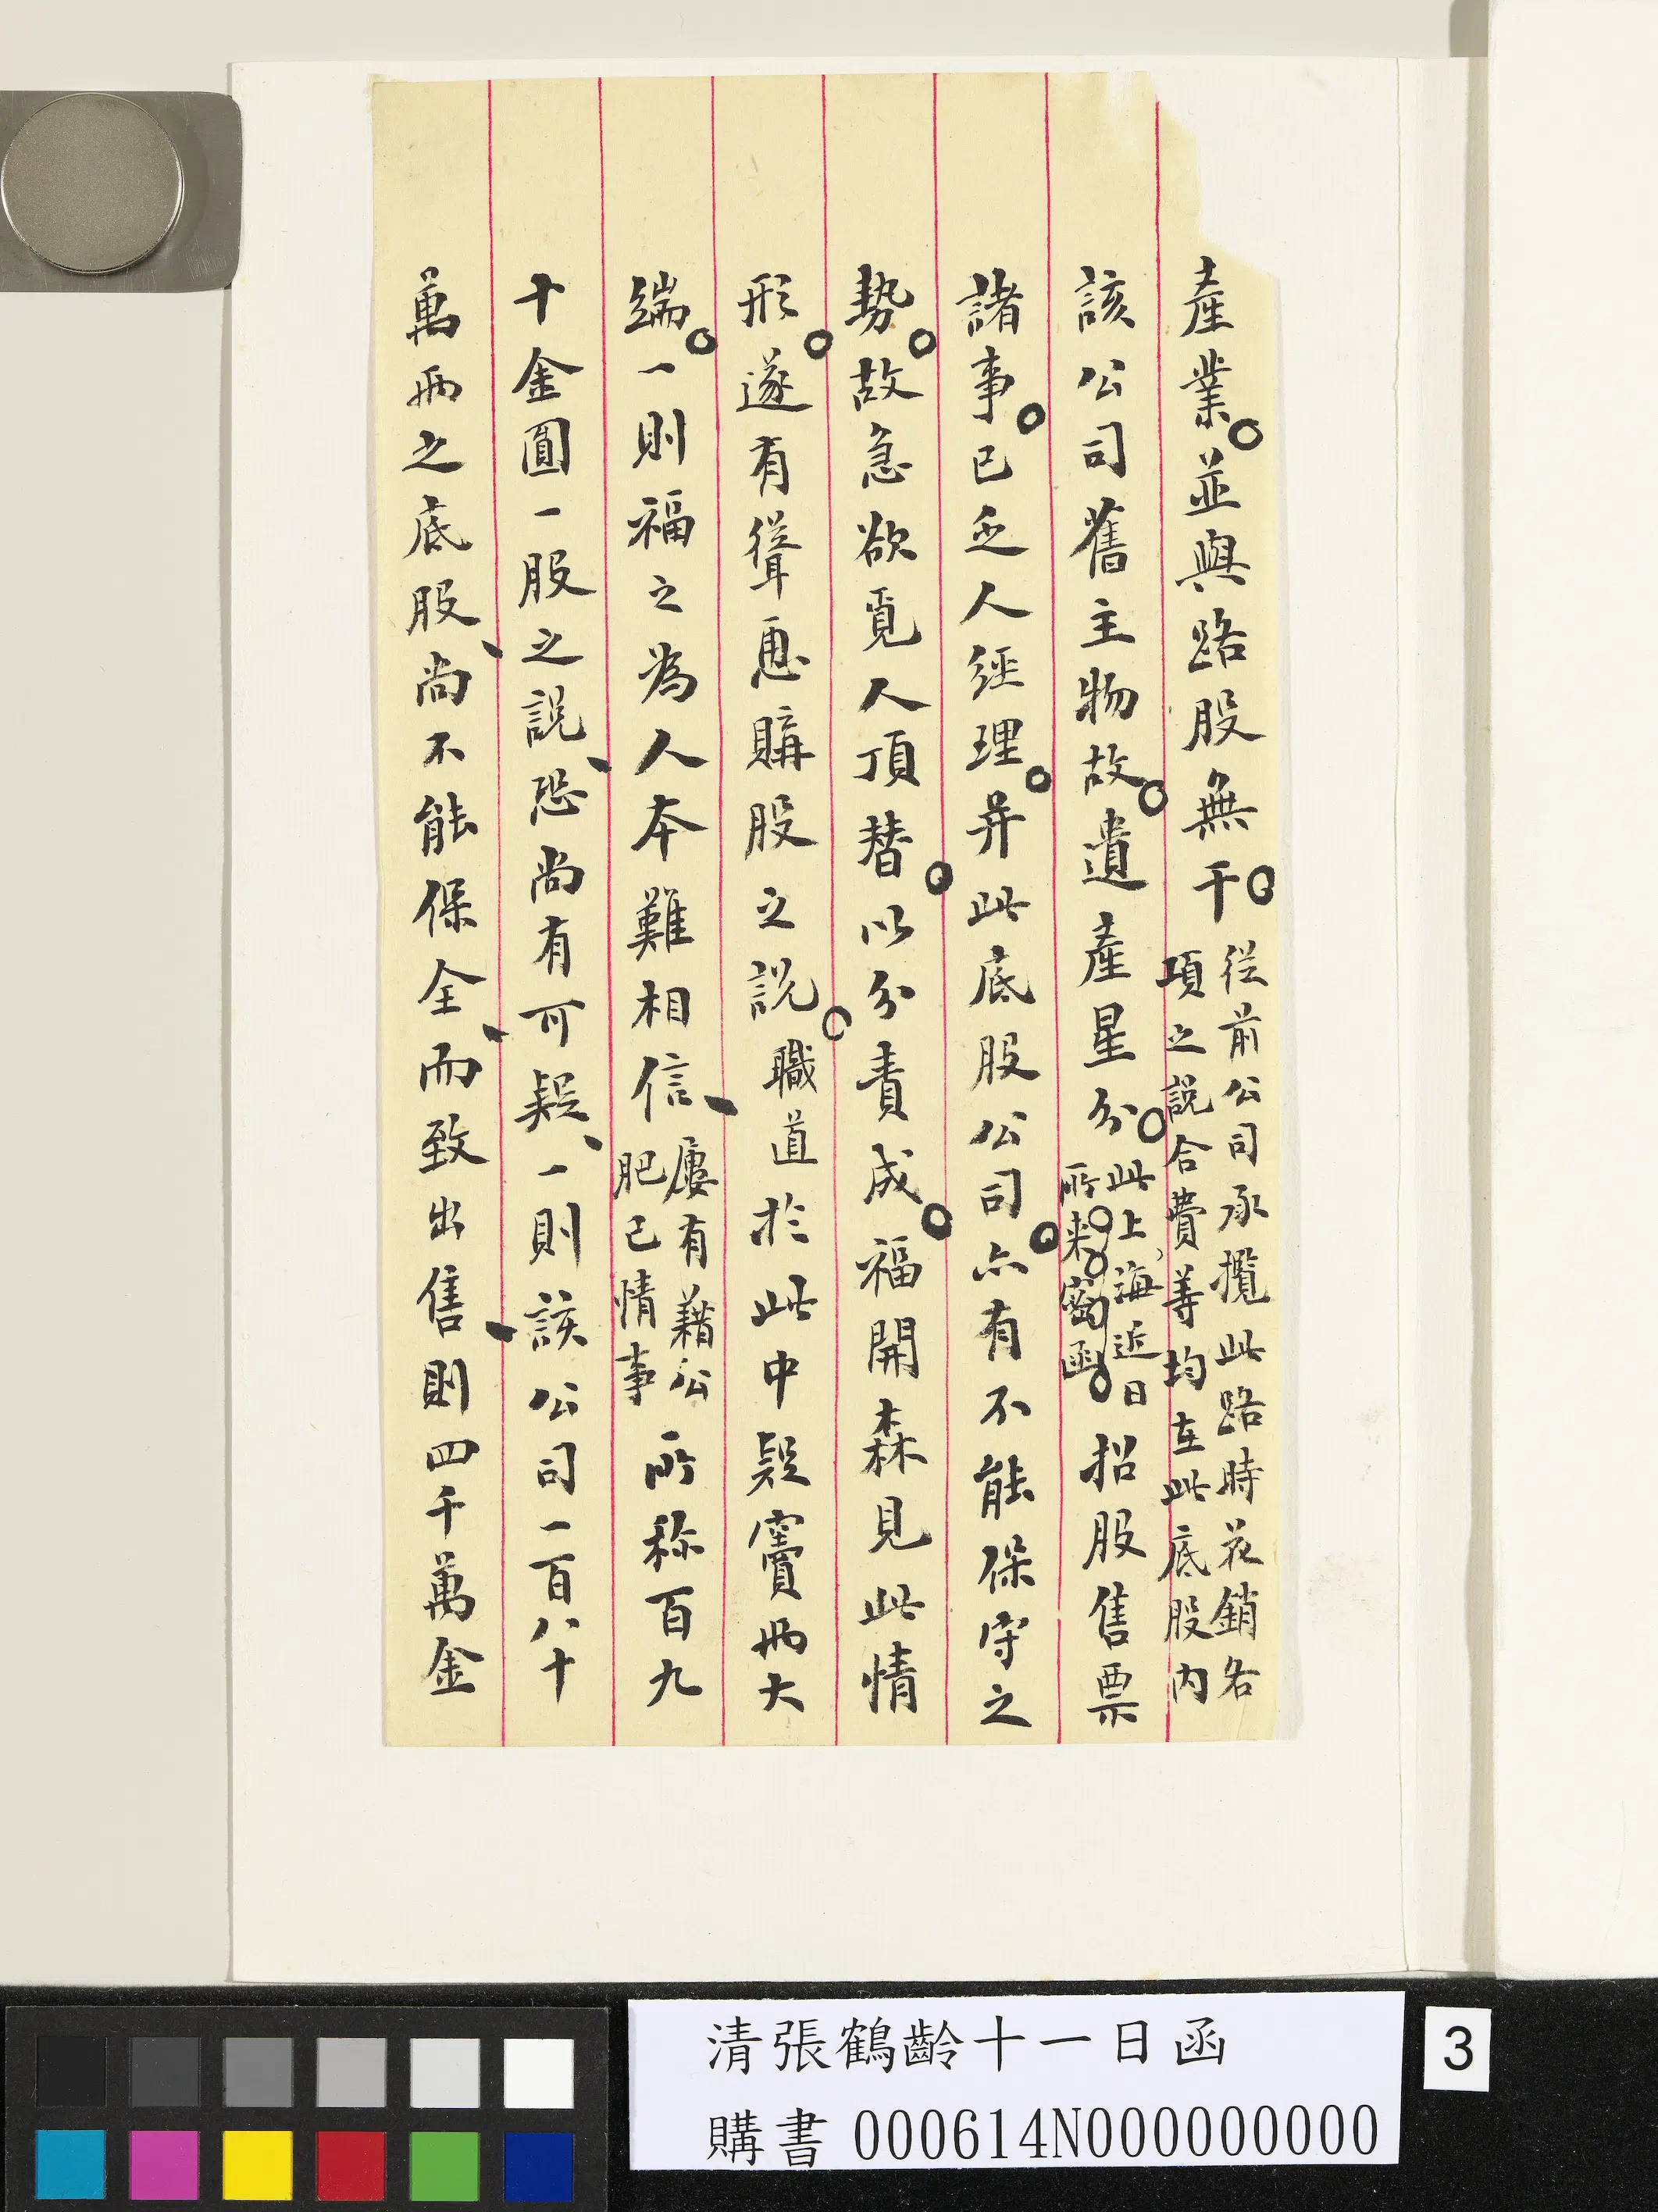 產業並與路股無干從前公司承攬此路時花銷各項之説合費等均在此底股內
該公司舊主物故遺產星分此上海近日所來密函招股售票
諸事已乏人經理并此底股公司亦有不能保守之
勢故急欲覓人頂替以分責成福開森見此情
形遂有聳恿購股之説職道於此中疑竇兩大
端一則福之為人本難相信屢有藉公肥己情事所称百九
十金圓一股之説恐尚有可疑一則該公司一百八十
萬兩之底股尚不能保全而致出售則四千萬金
清張鶴齡十一日函
購書 000614N000000000
3